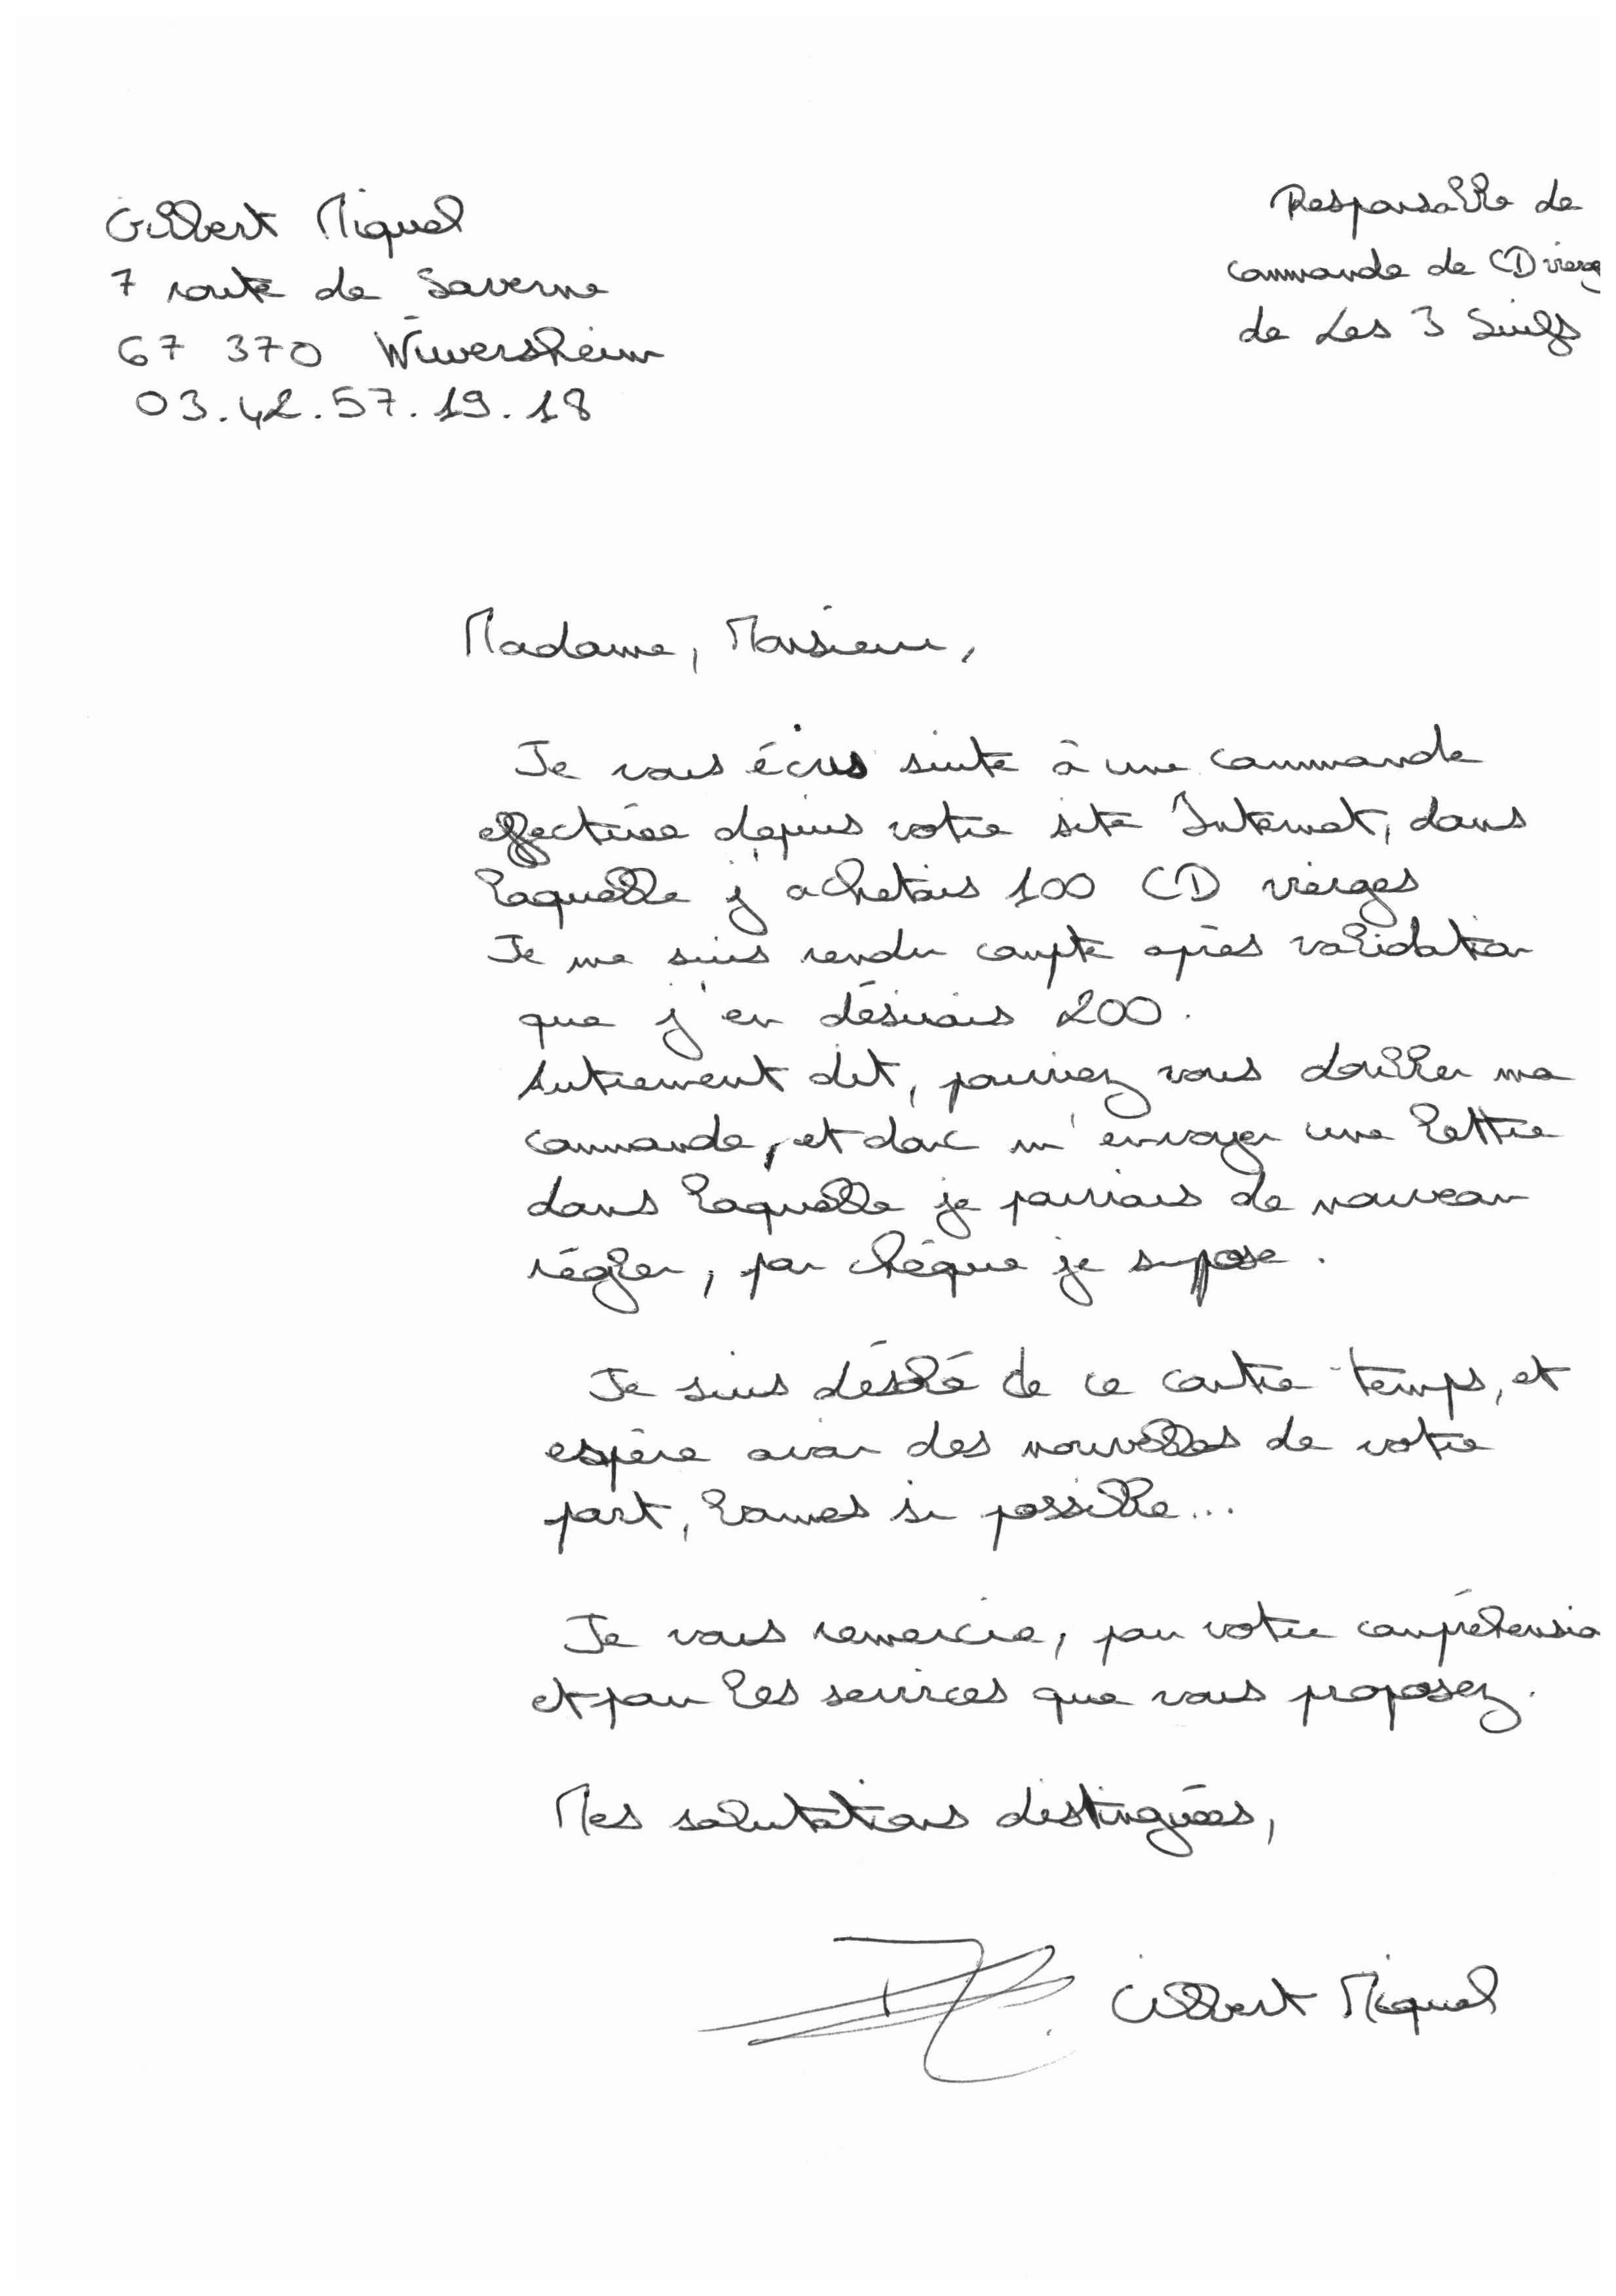 Gilbert Miquel
7 route de Saverne
67 370 Wiwersheim
03.42.57.19.18
Responsable de
commande de CD vierg
de Les 3 Suiss
Madame, Monsieur,
Je vous écris suite à une commande
effectuée depuis votre site Internet, dans
laquelle j'achetais 100 CD vierges
Je me suis rendu compte après validation
que j'en désirais 200.
Autrement dit, pourriez vous doubler ma
commande, et donc m'envoyer une lettre
dans laquelle je pourrais de nouveau
régler, par chèque je supose.
Je suis désolé de ce contre-temps, et
espère avoir des nouvelles de votre
part, bonnes si possible...
Je vous remercie, pour votre compréhensio
et pour les services que vous proposez.
Mes salutations distinguées,
Gilbert Miquel